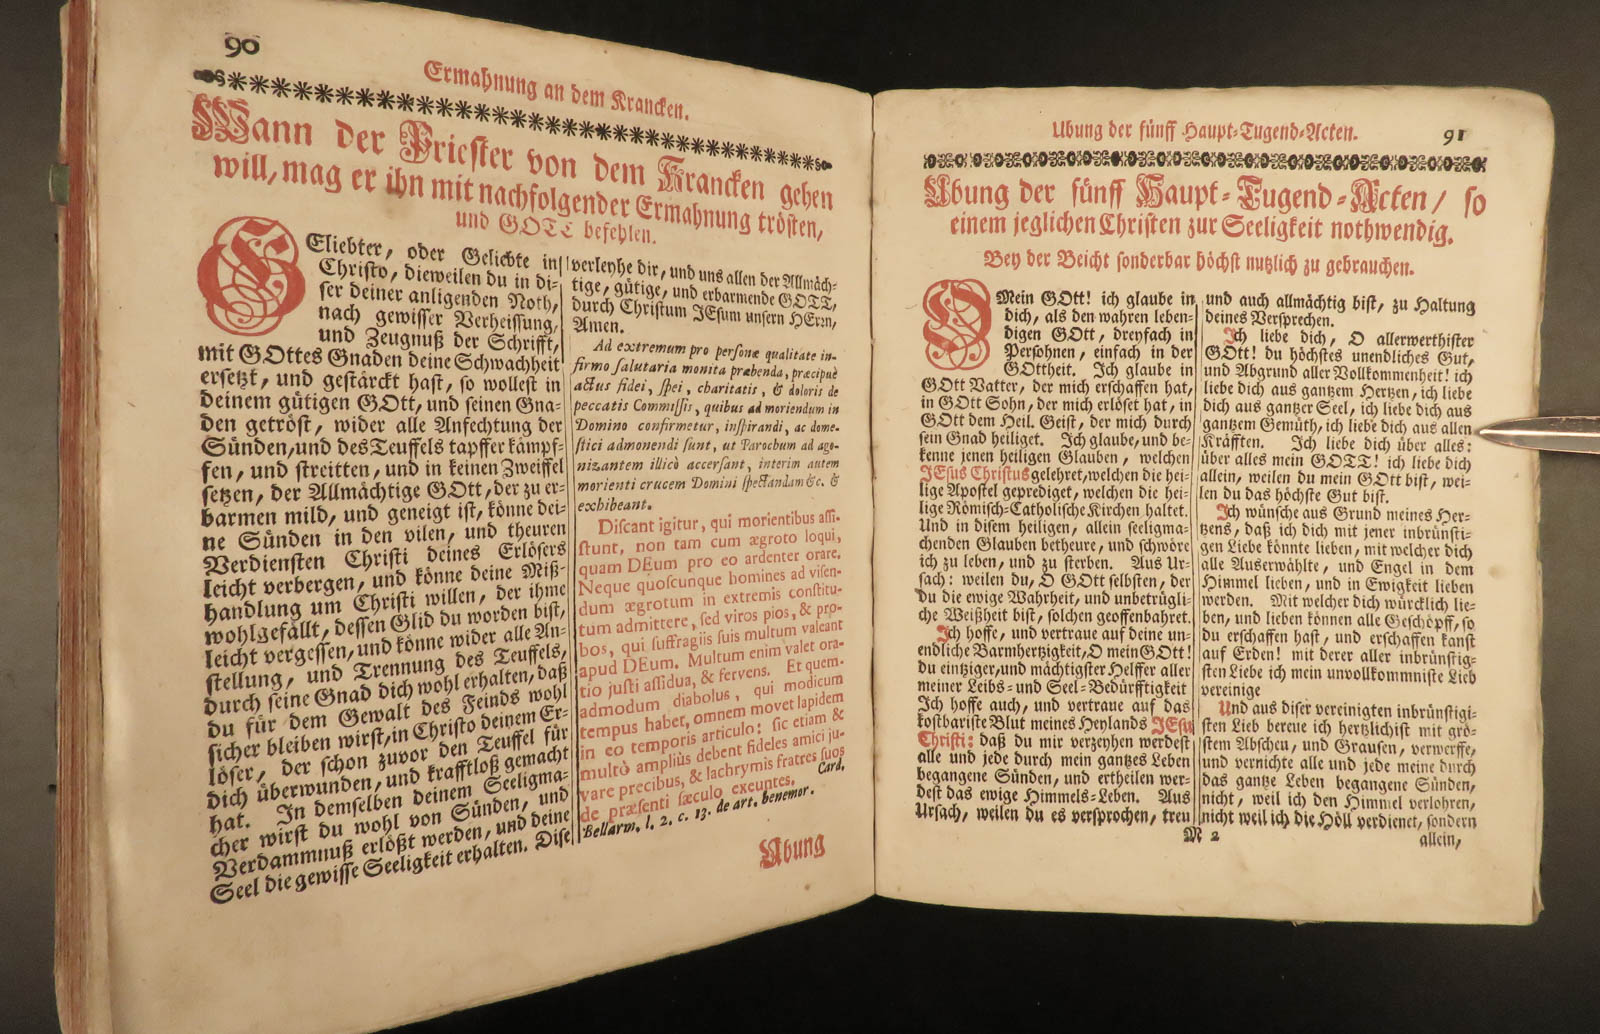 90
Ermahnung an dem Krancken.
Wann der Priester von dem Krancken gehen
will, mag er ihn mit nachfolgender Ermahnung trösten,
und GOTT befehlen.
GEliebter, oder Geliebte in
Christo, dieweilen du in di-
ser deiner anligenden Noth,
nach gewisser Verheissung,
und Zeugnuß der Schrifft,
mit GOttes Gnaden deine Schwachheit
ersetzt, und gestärckt hast, so wollest in
deinem gütigen GOtt, und seinen Gna-
den getröst, wider alle Anfechtung der
Sünden, und des Teuffels tapffer kämpf-
fen, und streitten, und in keinen Zweiffel
setzen, der Allmächtige GOtt, der zu er-
barmen mild, und geneigt ist, könne dei-
ne Sünden in den vilen, und theuren
Verdiensten Christi deines Erlösers
leicht verbergen, und könne deine Miß-
handlung um Christi willen, der ihme
wohlgefällt, dessen Glid du worden bist,
leicht vergessen, und könne wider alle An-
stellung, und Trennung des Teuffels,
durch seine Gnad dich wohl erhalten, daß
du für dem Gewalt des Feinds wohl
sicher bleiben wirst, in Christo deinem Er-
löser, der schon zuvor den Teuffel für
dich überwunden, und krafftloß gemacht
hat. In demselben deinem Seeligma-
cher wirst du wohl von Sünden, und
Verdammnuß erlößt werden, und deine
Seel die gewisse Seeligkeit erhalten. Dise
verleyhe dir, und uns allen der Allmäch-
tige, gütige, und erbarmende GOTT,
durch Christum JEsum unsern HErrn,
Amen.
Ad extremum pro personæ qualitate in-
firmo salutaria monita præbenda, præcipuè
actus fidei, spei, charitatis, & doloris de
peccatis Commissis, quibus ad moriendum in
Domino confirmetur, inspirandi, ac dome-
stici admonendi sunt, ut Parochum ad ago-
nizantem illicò accersant, interim autem
morienti crucem Domini spectandam &c. &
exhibeant.
Discant igitur, qui morientibus assi-
stunt, non tam cum ægroto loqui,
quam DEum pro eo ardenter orare.
Neque quoscunque homines ad visen-
dum ægrotum in extremis constitu-
tum admittere, sed viros pios, & pro-
bos, qui suffragiis suis multum valeant
apud DEum. Multum enim valet ora-
tio justi assidua, & fervens. Et quem-
admodum diabolus, qui modicum
tempus habet, omnem movet lapidem
in eo temporis articulo: sic etiam &
multò ampliùs debent fideles amici ju-
vare precibus, & lachrymis fratres suos
de præsenti sæculo exeuntes. Card.
Bellarm. l. 2. c. 13. de art. benemor.
Ubung
Ubung der fünff Haupt-Tugend-Acten.
91
Ubung der fünff Haupt-Tugend-Acten / so
einem jeglichen Christen zur Seeligkeit nothwendig.
Bey der Beicht sonderbar höchst nutzlich zu gebrauchen.
OMein GOtt! ich glaube in
dich, als den wahren leben-
digen GOtt, dreyfach in
Persohnen, einfach in der
GOttheit. Ich glaube in
GOtt Vatter, der mich erschaffen hat,
in GOtt Sohn, der mich erlöset hat, in
GOtt dem Heil. Geist, der mich durch
sein Gnad heiliget. Ich glaube, und be-
kenne jenen heiligen Glauben, welchen
JEsus Christus gelehret, welchen die hei-
lige Apostel geprediget, welchen die hei-
lige Römisch-Catholische Kirchen haltet.
Und in disem heiligen, allein seeligma-
chenden Glauben betheure, und schwöre
ich zu leben, und zu sterben. Aus Ur-
sach: weilen du, O GOtt selbsten, der
du die ewige Wahrheit, und unbetrügli-
che Weißheit bist, solchen geoffenbahret.
Ich hoffe, und vertraue auf deine un-
endliche Barmhertzigkeit, O mein GOtt!
du eintziger, und mächtigster Helffer aller
meiner Leibs- und Seel-Bedürfftigkeit
Ich hoffe auch, und vertraue auf das
kostbariste Blut meines Heylands JEsu
Christi: daß du mir verzeyhen werdest
alle und jede durch mein gantzes Leben
begangene Sünden, und ertheilen wer-
dest das ewige Himmels-Leben. Aus
Ursach, weilen du es versprochen, treu
und auch allmächtig bist, zu Haltung
deines Versprechen.
Ich liebe dich, O allerwerthister
GOtt! du höchstes unendliches Gut,
und Abgrund aller Vollkommenheit! ich
liebe dich aus gantzem Hertzen, ich liebe
dich aus gantzer Seel, ich liebe dich aus
gantzem Gemüth, ich liebe dich aus allen
Kräfften. Ich liebe dich über alles:
über alles mein GOTT! ich liebe dich
allein, weilen du mein GOtt bist, wei-
len du das höchste Gut bist.
Ich wünsche aus Grund meines Her-
tzens, daß ich dich mit jener inbrünsti-
gen Liebe könnte lieben, mit welcher dich
alle Auserwählte, und Engel in dem
Himmel lieben, und in Ewigkeit lieben
werden. Mit welcher dich würcklich lie-
ben, und lieben können alle Geschöpff, so
du erschaffen hast, und erschaffen kanst
auf Erden! mit derer aller inbrünstig-
sten Liebe ich mein unvollkommniste Lieb
vereinige
Und aus diser vereinigten inbrünstigi-
sten Lieb bereue ich hertzlichist mit grö-
stem Abscheu, und Grausen, verwerffe,
und vernichte alle und jede meine durch
das gantze Leben begangene Sünden,
nicht, weil ich den Himmel verlohren,
nicht weil ich die Höll verdienet, sondern
M 2
allein,